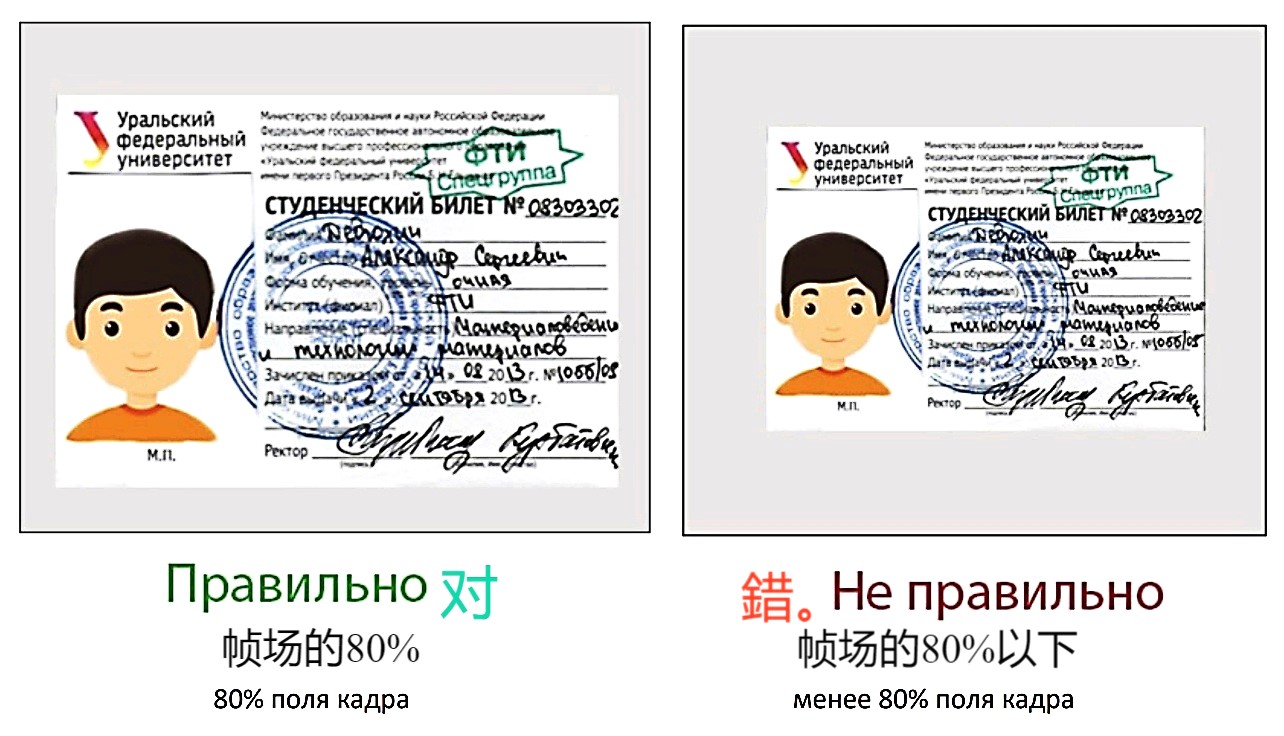 Уральский
федеральный
университет
Министерство образования и науки Российской Федерации
Федеральное государственное автономное образовательное
учреждение высшего профессионального
«Уральский федеральный университет
имени первого Президента России
ФТИ
Спецгруппа
СТУДЕНЧЕСКИЙ БИЛЕТ № 08303302
Фамилия
Имя, Отчество Александр Сергеевич
Форма обучения, очная
Институт (филиал) ФТИ
Направление (специальность) Материаловедение
и технологии материалов
Зачислен приказом от «14» 08 2013 г. № 1066/03
Дата выдачи «2» сентября 2013 г.
Ректор
М.П.
Уральский
федеральный
университет
Министерство образования и науки Российской Федерации
Федеральное государственное автономное образовательное
учреждение высшего профессионального
«Уральский федеральный университет
имени первого Президента России
ФТИ
Спецгруппа
СТУДЕНЧЕСКИЙ БИЛЕТ № 08303302
Фамилия
Имя, Отчество Александр Сергеевич
Форма обучения, очная
Институт (филиал) ФТИ
Направление (специальность) Материаловедение
и технологии материалов
Зачислен приказом от «14» 08 2013 г. № 1066/03
Дата выдачи «2» сентября 2013 г.
Ректор
М.П.
Правильно 对
帧场的80%
80% поля кадра
錯。Не правильно
帧场的80%以下
менее 80% поля кадра